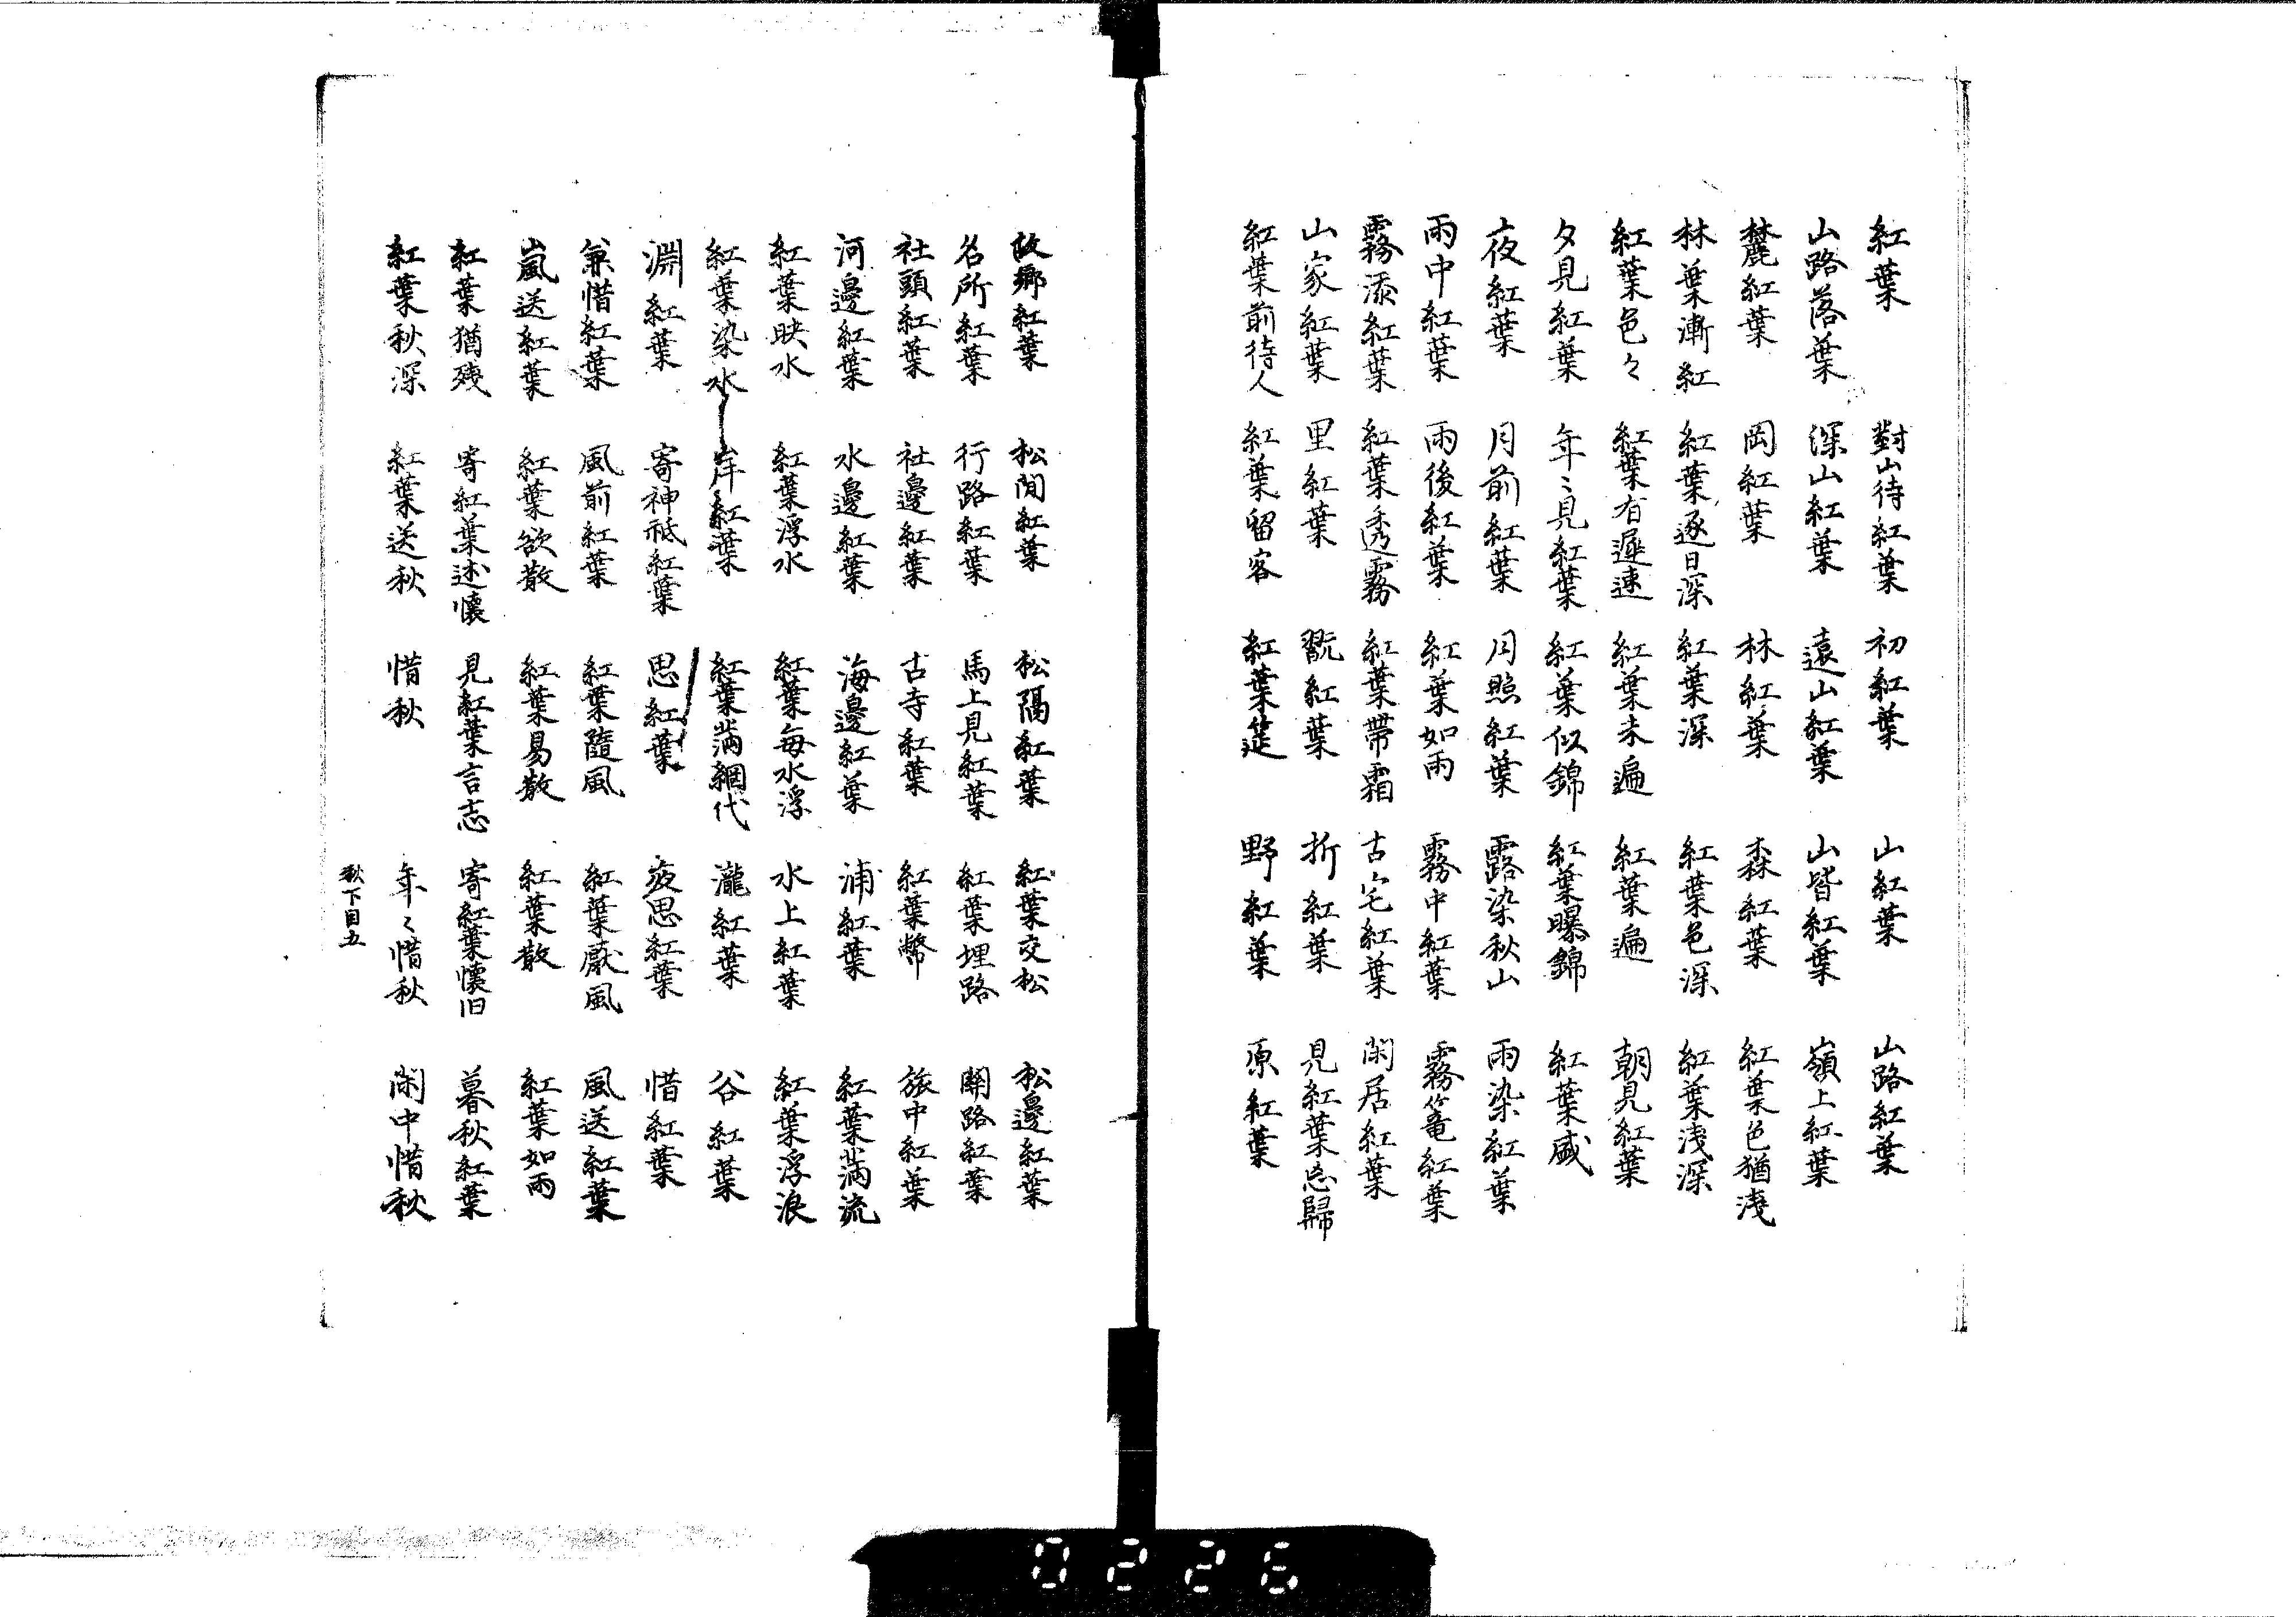 紅葉 對山待紅葉 初紅葉 山紅葉 山路紅葉
山路落葉 深山紅葉 遠山紅葉 山皆紅葉 嶺上紅葉
麓紅葉 岡紅葉 林紅葉 森紅葉 紅葉色猶淺
林葉漸紅 紅葉逐日深 紅葉深 紅葉色深 紅葉淺深
紅葉色々 紅葉有遲速 紅葉未遍 紅葉遍 朝見紅葉
夕見紅葉 年〻見紅葉 紅葉似錦 紅葉曝錦 紅葉盛
夜紅葉 月前紅葉 月照紅葉 露染秋山 雨染紅葉
雨中紅葉 雨後紅葉 紅葉如雨 霧中紅葉 霧篭紅葉
霧添紅葉 紅葉透霧 紅葉帶霜 古宅紅葉 閑居紅葉
山家紅葉 里紅葉 翫紅葉 折紅葉 見紅葉忘歸
紅葉前待人 紅葉留客 紅葉筵 野紅葉 原紅葉
故郷紅葉 松間紅葉 松隔紅葉 紅葉交松 松邊紅葉
名所紅葉 行路紅葉 馬上見紅葉 紅葉埋路 關路紅葉
社頭紅葉 社邊紅葉 古寺紅葉 紅葉幣 旅中紅葉
河邊紅葉 水邊紅葉 海邊紅葉 浦紅葉 紅葉滿流
紅葉映水 紅葉浮水 紅葉毎水浮 水上紅葉 紅葉浮浪
紅葉染水 岸紅葉 紅葉滿網代 瀧紅葉 谷紅葉
淵紅葉 寄神祇紅葉 思紅葉 夜思紅葉 惜紅葉
兼惜紅葉 風前紅葉 紅葉隨風 紅葉厭風 風送紅葉
嵐送紅葉 紅葉欲散 紅葉易散 紅葉散 紅葉如雨
紅葉猶残 寄紅葉述懷 見紅葉言志 寄紅葉懷旧 暮秋紅葉
紅葉秋深 紅葉送秋 惜秋 年〻惜秋 閑中惜秋
秋下目五
0226